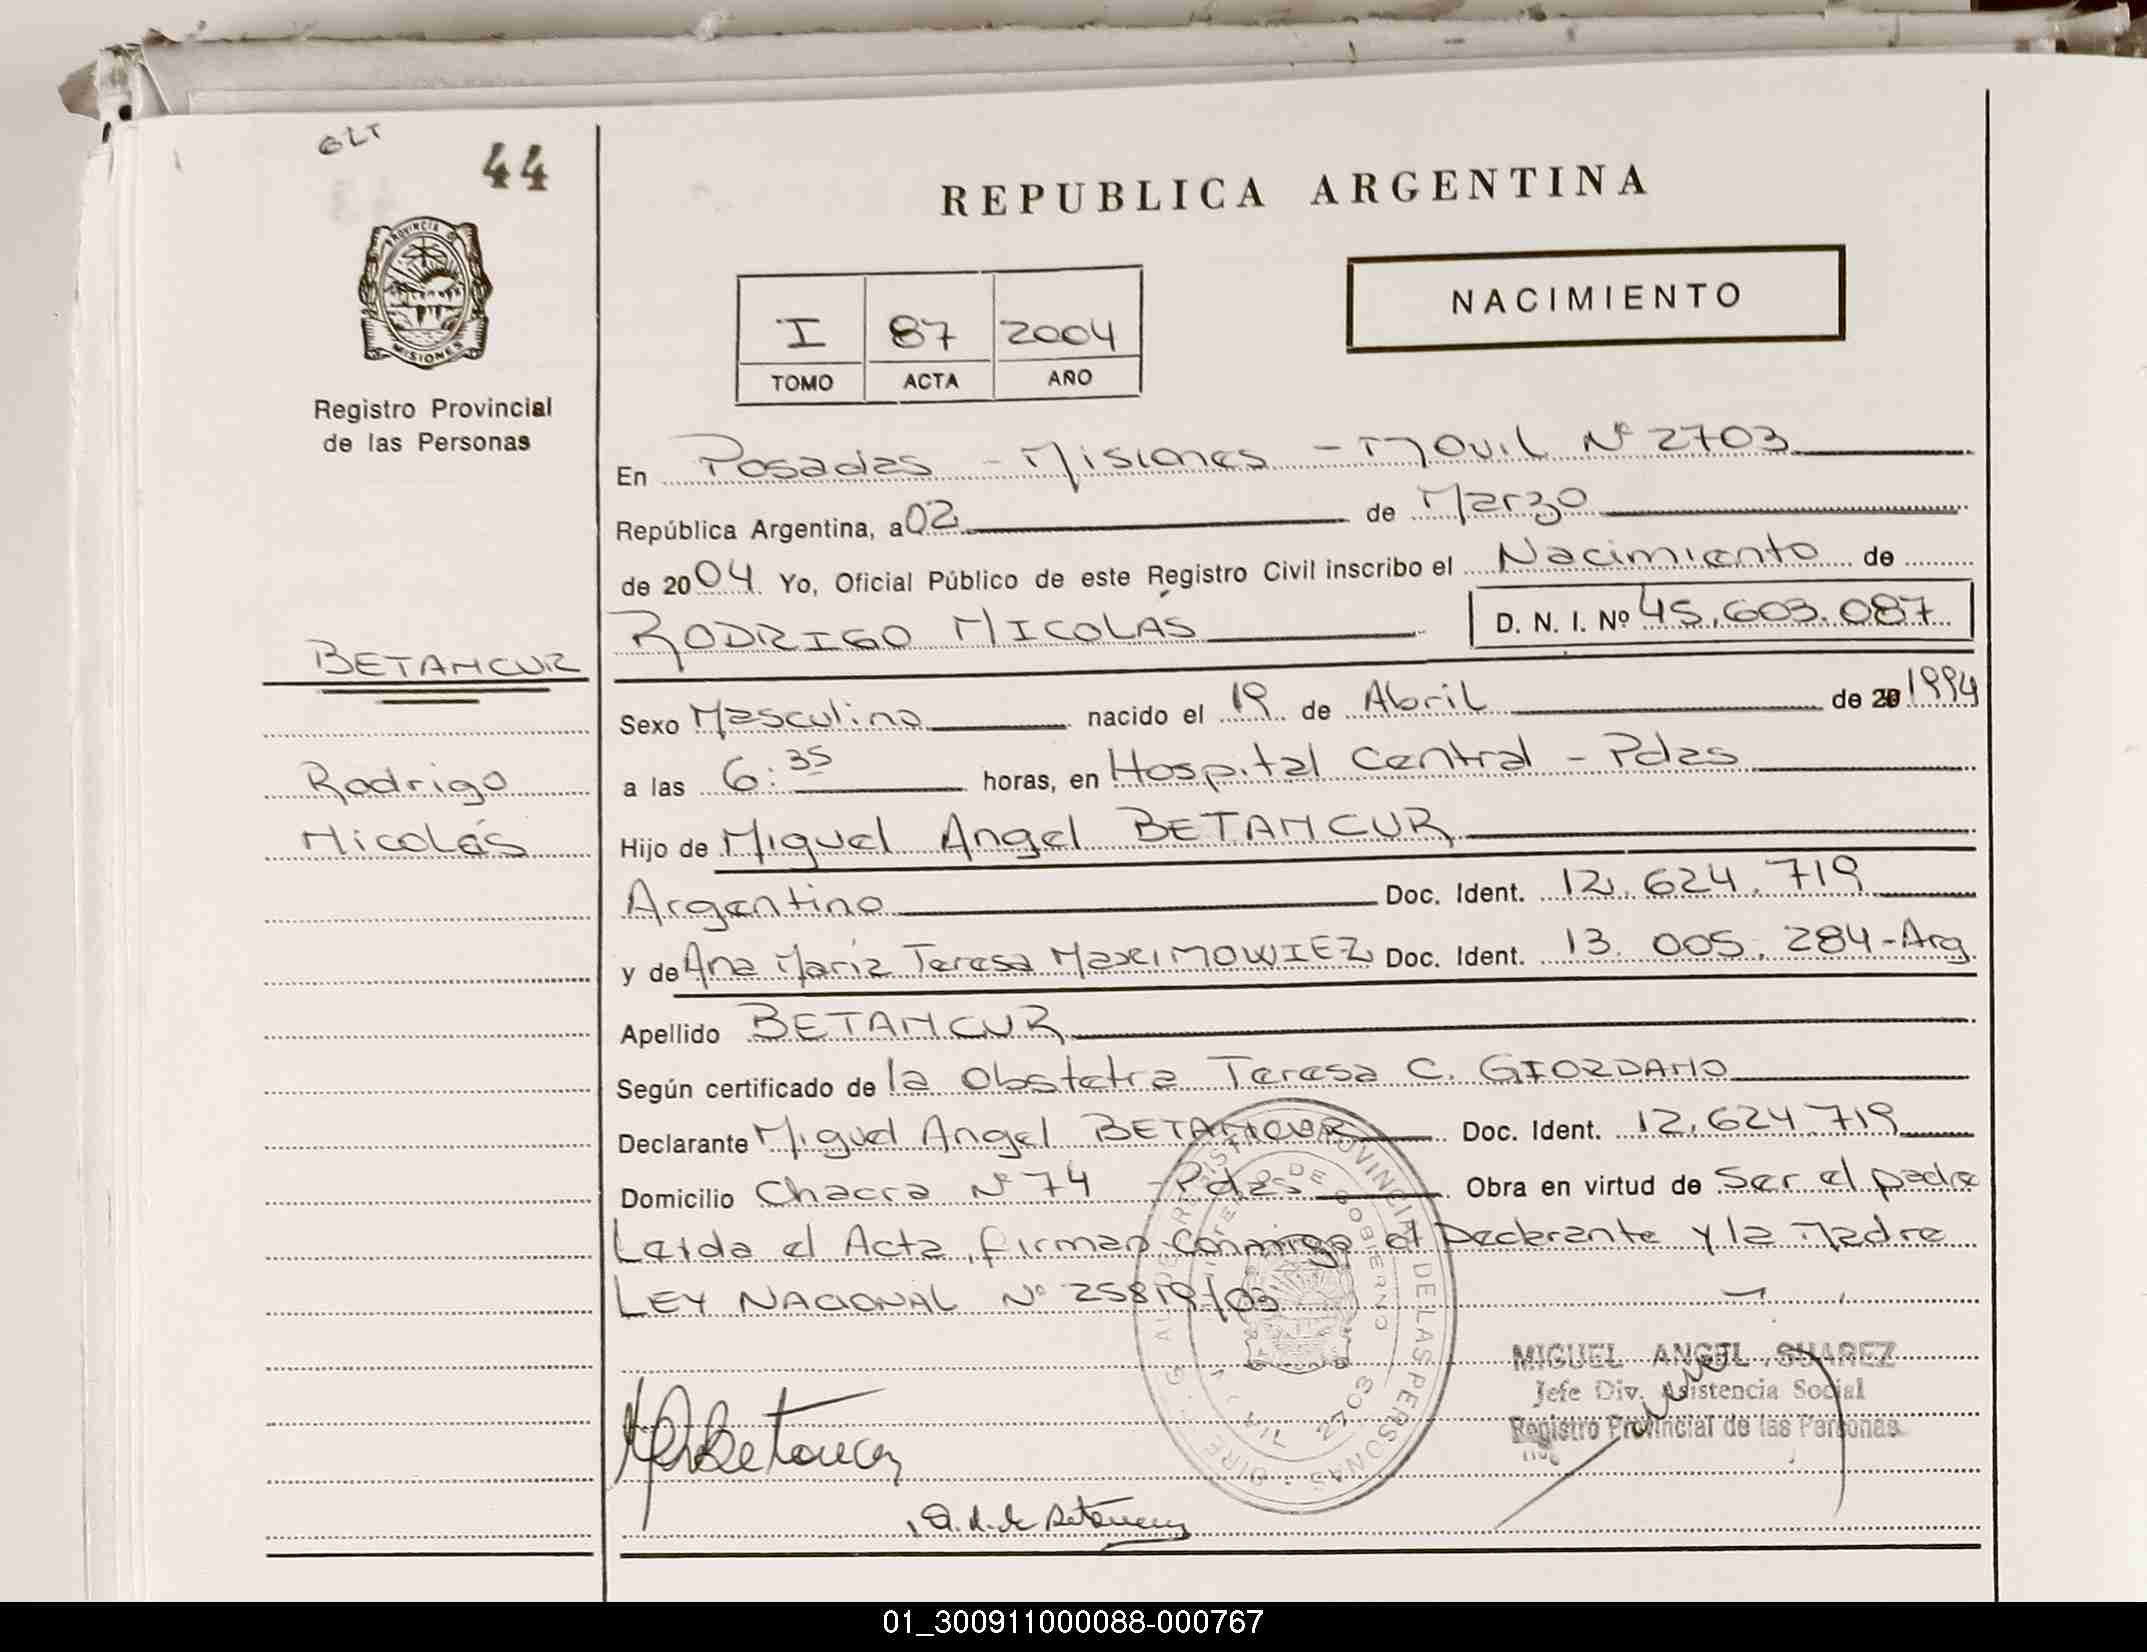 GLT
44
PROVINCIA DE
MISIONES
Registro Provincial
de las Personas
REPUBLICA ARGENTINA
NACIMIENTO
I 87 2004
TOMO ACTA AÑO
En Posadas - Misiones - Movil Nº 2703
República Argentina, a 02 de Marzo
de 2004 Yo, Oficial Público de este Registro Civil inscribo el Nacimiento de
RODRIGO NICOLÁS D. N. I. Nº 45.603.087
BETANCUR
Rodrigo
Nicolás
Sexo Masculino nacido el 19 de Abril de 20 1994
a las 6:35 horas, en Hospital Central - Pdas
Hijo de Miguel Angel BETANCUR
Argentino Doc. Ident. 12.624.719
y de Ana María Teresa MAXIMOWIEZ Doc. Ident. 13.005.284-Arg
Apellido BETANCUR
Según certificado de la Obstetra Teresa C. GIORDANO
Declarante Miguel Angel BETANCUR Doc. Ident. 12.624.719
Domicilio Chacra Nº 74 - Pdas Obra en virtud de Ser el padre
Leida el Acta, firman conmigo el Declarante y la Madre
LEY NACIONAL Nº 25819/03
PROVINCIAL DE LAS PERSONAS
DE GOBIERNO
2703
MIGUEL ANGEL SUAREZ
Jefe Div. Asistencia Social
Registro Provincial de las Personas
01_300911000088-000767